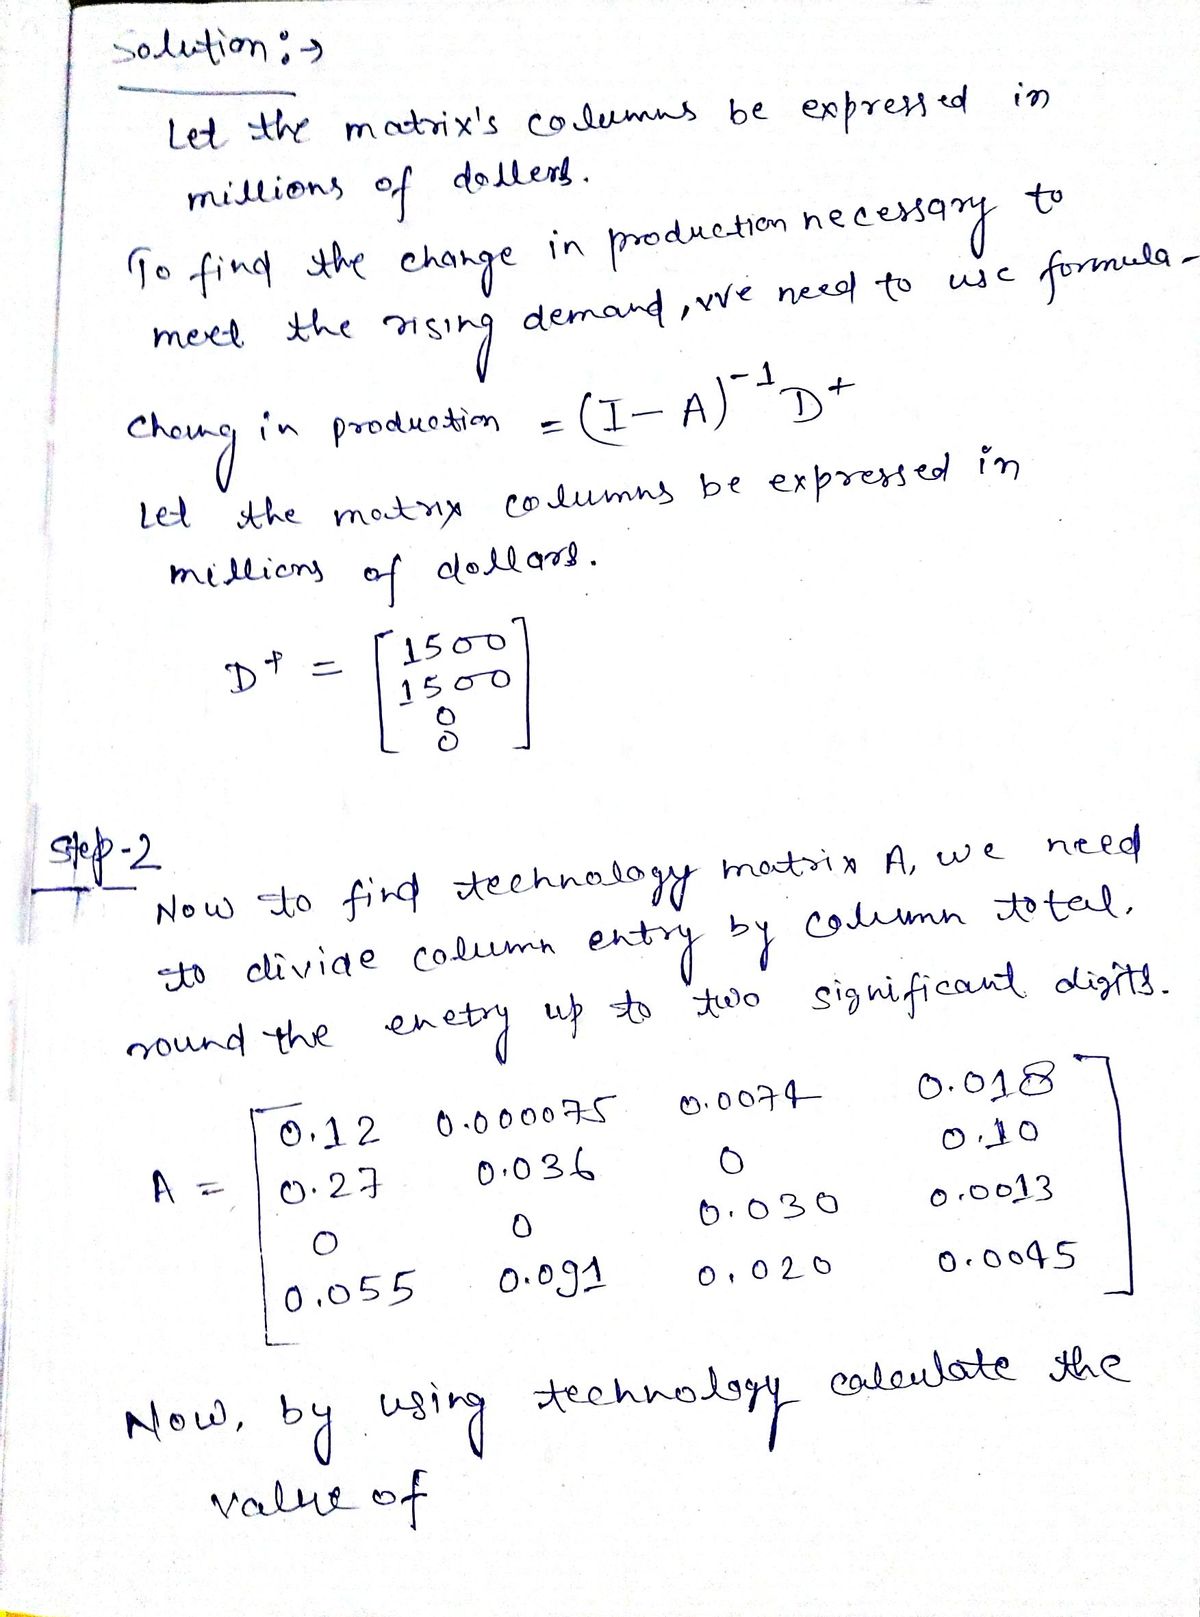 Solution :→
Let the matrix's columns be expressed in
millions of dollers.
To find the change in production necessary to
meet the rising demand, we need to use formula-
Chang in production = (I - A)⁻¹ D⁺
Let the matrix columns be expressed in
millions of dollars.
D⁺ = [1500
1500
0
0]
Step-2
Now to find technology matrix A, we need
to divide column entry by column total.
round the enetry up to two significant digits.
A = [0.12 0.000075 0.0074 0.018
0.27 0.036 0 0.10
0 0 0.030 0.0013
0.055 0.091 0.020 0.0045]
Now, by using technology calculate the
value of